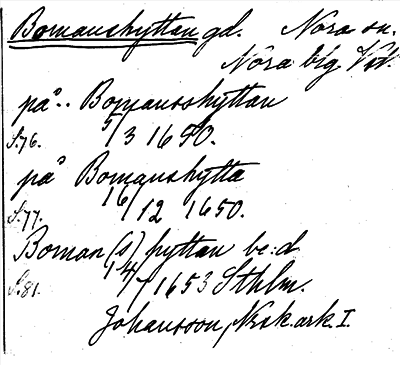 Bomanshyttan gd. Nora sn.
Nora blg Vsl.
på.. Bomansshyttan
S.76. 5/3 1650.
på Bomanshytta
S.77. 16/12 1650.
Boman(s)hyttan be:d
S.81. 14/7 1653 Sthlm.
Johansson, Nrsk.ark. I.